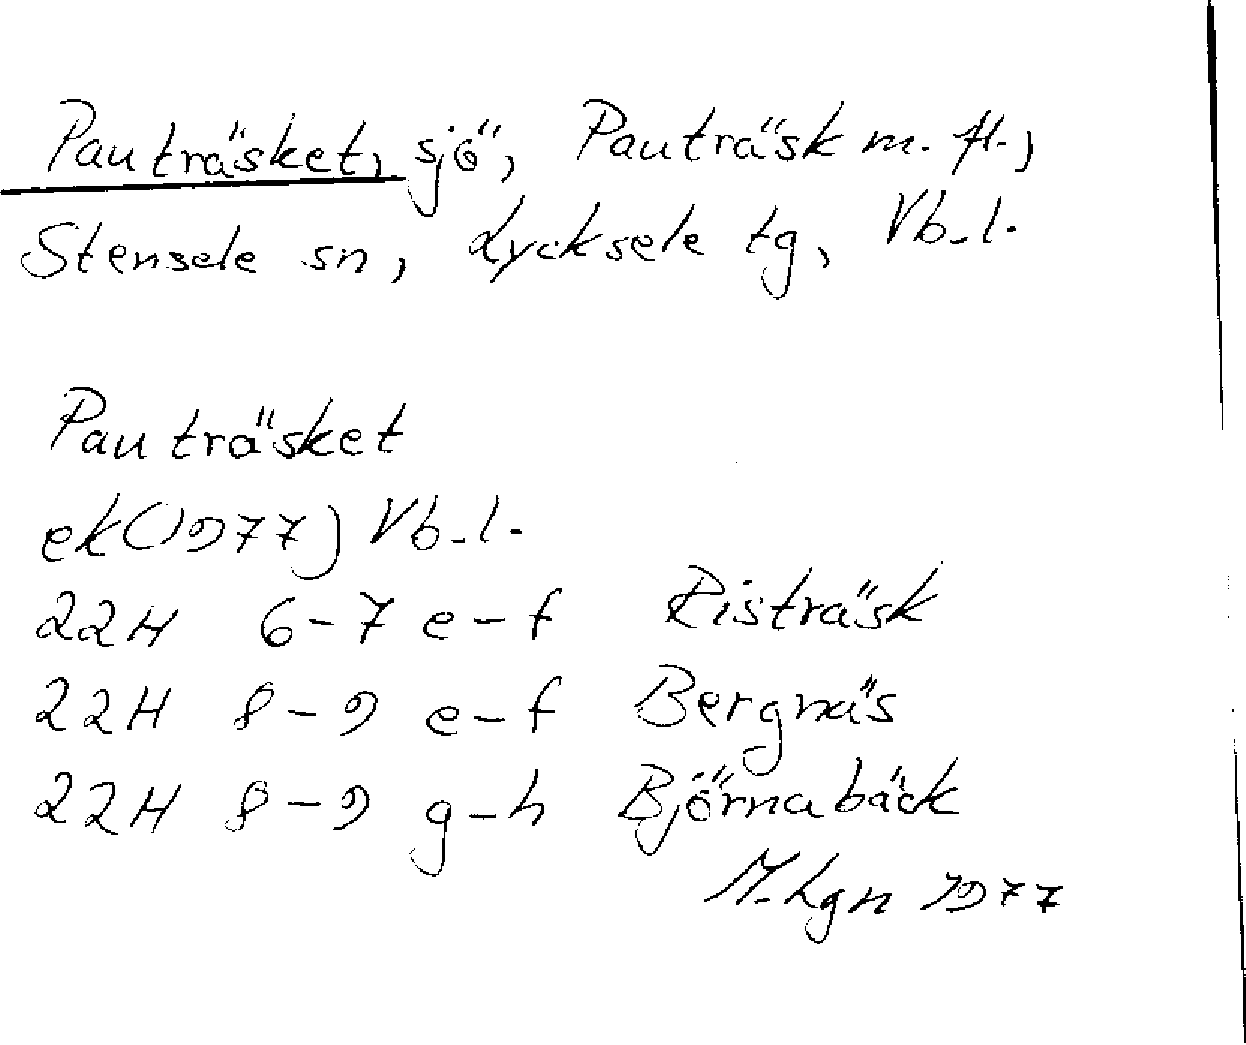 Pauträsket, sjö, Pauträsk m. fl.,
Stensele sn, Lycksele tg, Vb. l.
Pauträsket
ek (1977) Vb. l.
22H 6-7 e-f Risträsk
22H 8-9 e-f Bergnäs
22H 8-9 g-h Björnabäck
M. Lgn 1977